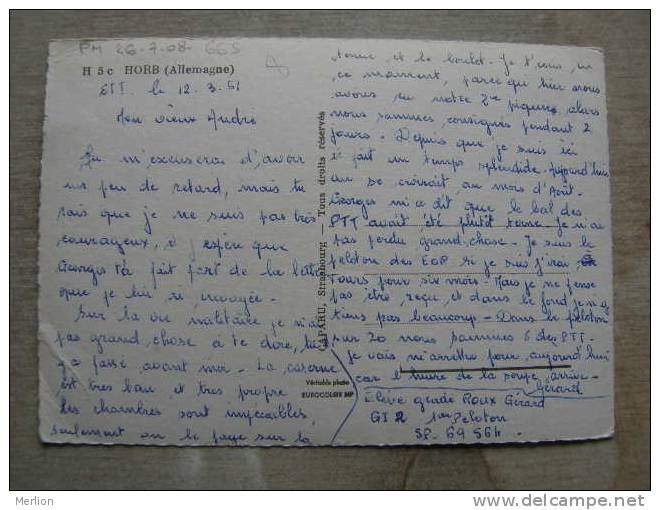 PM 26-7-08- 665
H 5 c HORB (Allemagne)
ETT. le 12.3.61
Mon vieux André
Tu m'excuseras d'avoir
un peu de retard, mais tu
sais que je ne suis pas très
courageux, et j'espère que
Georges t'a fait part de la lettre
que je lui ai envoyée.
Sur la vie militaire je n'ai
pas grand chose a te dire, tu
y a passé avant moi - La caserne
est très bien et très propre
les chambres sont impeccables,
seulement on le paye sur la
tenue, et le boulot. Je t'écris, en
ce moment, parce qui hier nous
avons eu notre 2me piqure, alors
nous sommes consignés pendant 2
jours. Depuis que je suis ici
il fait un temps splendide. Aujourd'hui
on se croirait au mois d'Août.
Georges m'a dit que le bal des
PTT avait été plutôt terne. Je n'ai
pas perdu grand chose - Je suis le
peloton des EOR si je suis j'irai à
Tours pour six mois - Mais je ne pense
pas être reçu et dans le fond je n'y
tiens pas beaucoup - Dans le peloton
sur 20 nous sommes 6 des PTT -
Je vais m'arrêter pour aujourd'hui
car l'heure de la soupe arrive -
Gérard
Elève gradé Roux Gérard
GI 2 1er Peloton
SP. 69 564
CAP-ARU, Strasbourg — Tous droits réservés
Véritable photo
EUROCOLOR MP
Merlion
www.delcampe.net